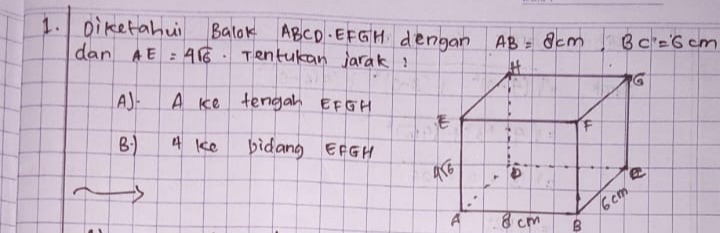 1. Diketahui Balok ABCD.EFGH dengan AB = 8cm, BC = 6 cm
dan AE = 4√6. Tentukan jarak :
A). A ke tengah EFGH
B.) A ke bidang EFGH
H
G
E
F
4√6
D
C
6cm
A
8 cm
B